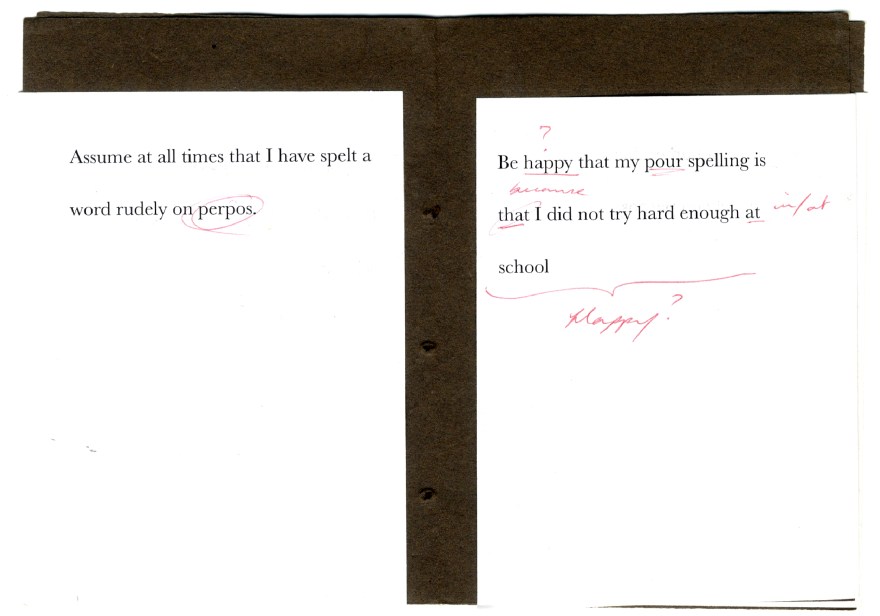 Assume at all times that I have spelt a
word rudely on perpos.
?
Be happy that my pour spelling is
because
that I did not try hard enough at in/at
school
Happy?